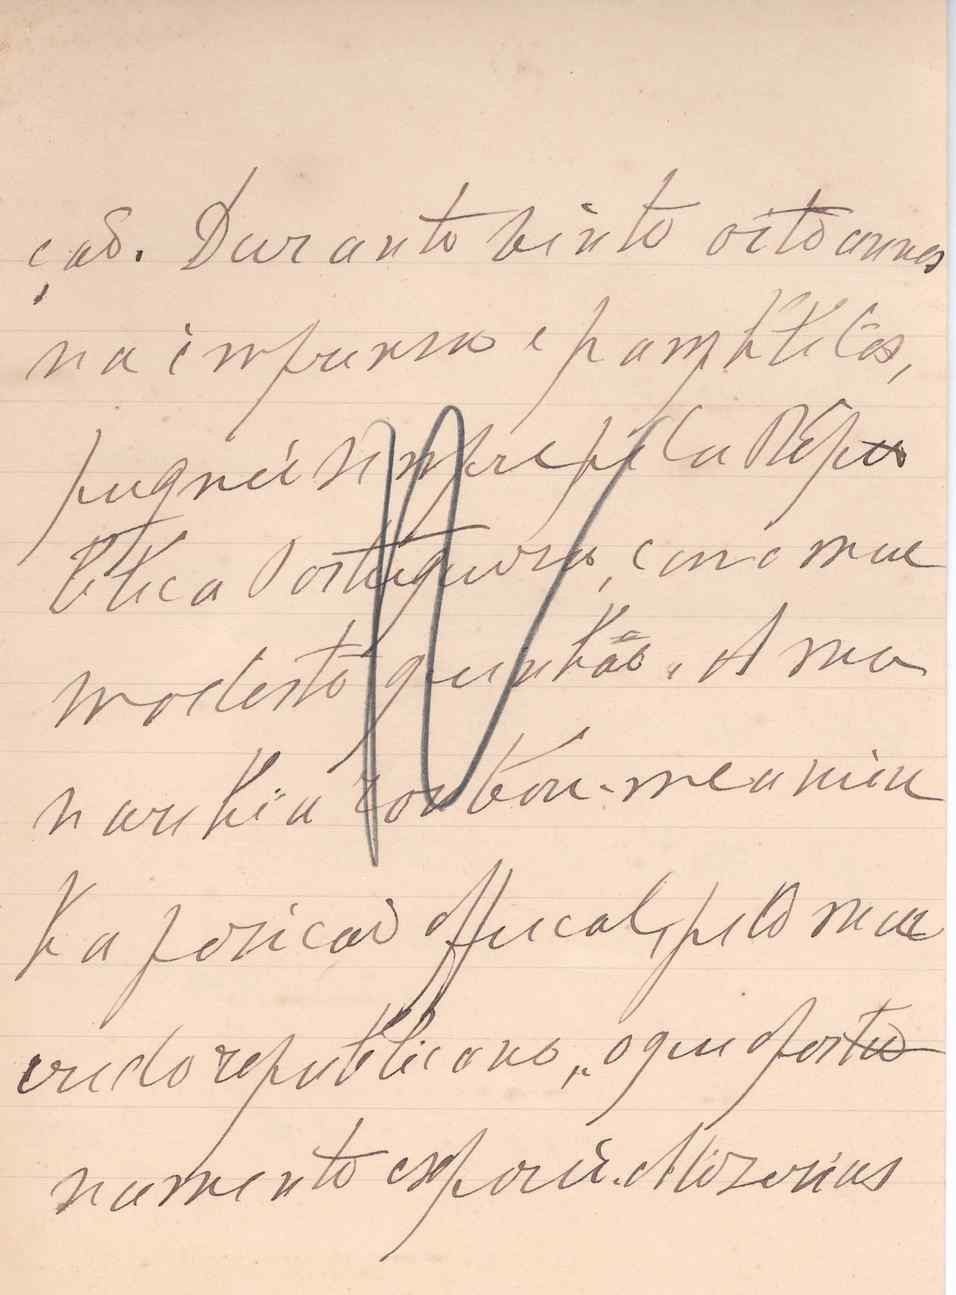 ção. Durante vinte oito annos
na imprensa e pamphletos,
pugnei sempre pela Repu
blica Portugueza, com o meu
modesto quinhão. A mo
narchia roubou-me a min
ha posicao official, pelo meu
credo republicano, o que oportu
namente exporei. Mizerias
IV